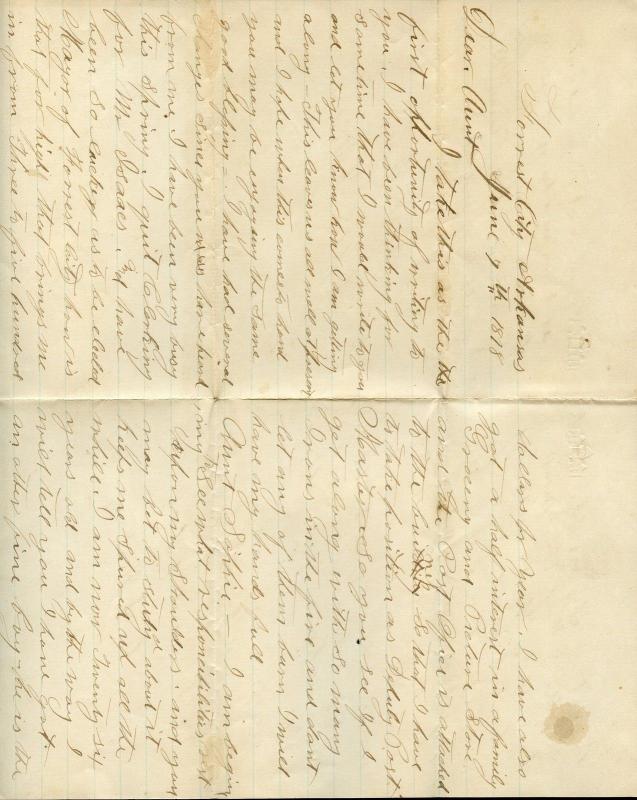 Forrest City Arkansas
June 7th 1878
Dear Aunt
I take this as the
first opportunity of writing to
you, I have been thinking for
sometime that I would write to you
and let you know how I am getting
along - This leaves us all well at present
and I hope when this comes to hand
you may be enjoying the same
good blessing - I have had several
changes since you have heard
from me, I have been very busy
this Spring. I quit Clerking
for Mr Isaacs, and have
been so lucky as to be elected
Mayor of Forrest City now is
that for high that brings me
in from Three to five hundred
dollars pr year, I have also
got a half interest in a family
Grocery and Picture Store
and the Post Office is attached
to the building So that I have
to take position as Deputy Post
Master So you see If I
get along with So many
Irons in the fire and dont
let any of them burn I will
have my hands full
Aunt Sophie - I am beging
ing to see what responsibilities rest
upon my Shoulders and you
may bet to study about it
keeps me Spured up all the
while, I am now Twenty six
years old and by the way I
will tell you I have got
an other fine boy - he is the